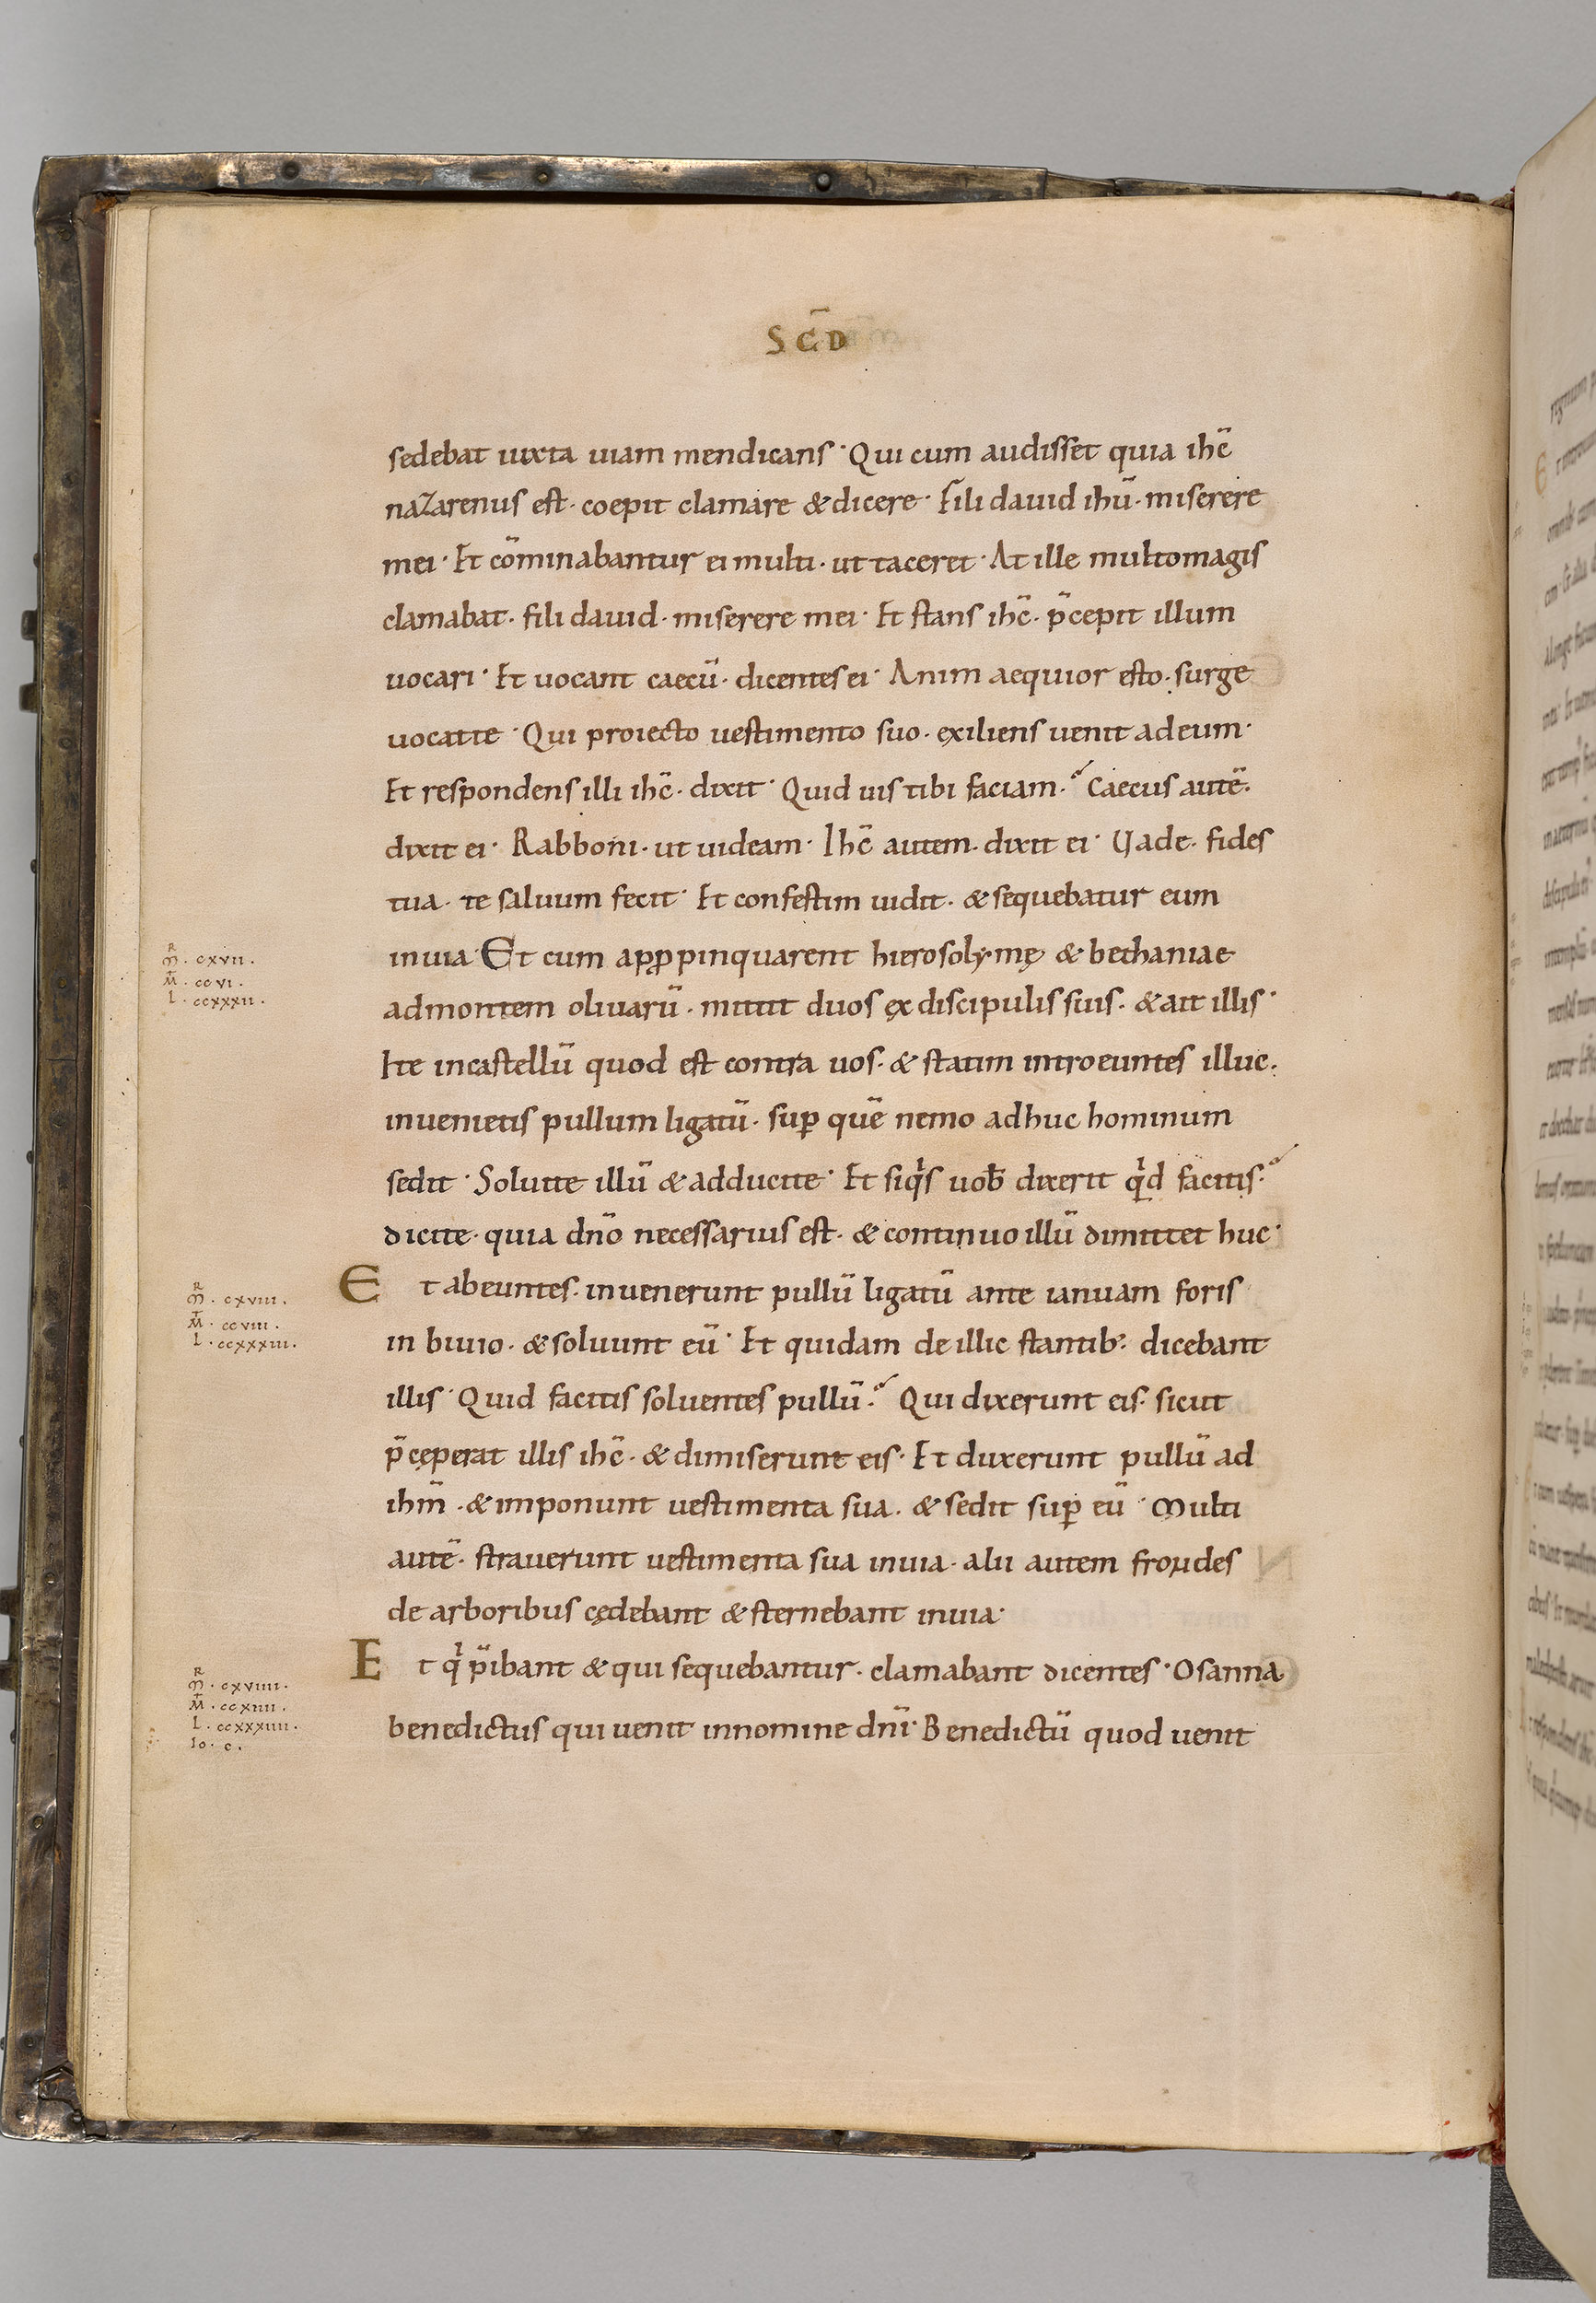 SC̄D
sedebat iuxta uiam mendicans · Qui cum audisset quia ihc̄
nazarenus est · coepit clamare & dicere · Fili dauid ihū · miserere
mei · Et cōminabantur ei multi · ut taceret · At ille multomagis
clamabat · fili dauid · miserere mei · Et stans ihc̄ · p̄cepit illum
uocari · Et uocant caecū · dicentes ei · Anim aequior esto · surge
uocat te · Qui proiecto uestimento suo · exiliens uenit ad eum ·
Et respondens illi ihc̄ · dixit · Quid uis tibi faciam ·? Caecus autē ·
dixit ei · Rabboni · ut uideam · Ihc̄ autem · dixit ei · Uade · fides
tua · te saluum fecit · Et confestim uidit · & sequebatur eum
in uia · Et cum apꝓpinquarent hierosolymę & bethaniae
R
M · cxvii ·
M̄ · ccvi ·
L · ccxxxii ·
ad montem oliuarū · mittit duos ex discipulis suis · & ait illis ·
Ite in castellū quod est contra uos · & statim introeuntes illuc ·
inuenietis pullum ligatū · suꝑ quē nemo adhuc hominum
sedit · Soluite illū & adducite · Et siqͥs uob̄ dixerit qͥd facitis ·?
dicite · quia dn̄o necessarius est · & continuo illū dimittet huc ·
Et abeuntes · inuenerunt pullū ligatū ante ianuam foris
R
M · cxviii ·
M̄ · ccviii ·
L · ccxxxiii ·
in biuio · & soluunt eū · Et quidam de illic stantib; · dicebant
illis · Quid facitis soluentes pullū ·? Qui dixerunt eis · sicut
p̄ceperat illis ihc̄ · & dimiserunt eis · Et duxerunt pullū ad
ihm̄ · & imponunt uestimenta sua · & sedit suꝑ eū · Multi
autē · strauerunt uestimenta sua in uia · alii autem frondes
de arboribus cędebant & sternebant in uia ·
Et qͥ p̄ibant & qui sequebantur · clamabant dicentes · Osanna
R
M · cxviiii ·
M̄ · ccxiiii ·
L · ccxxxiiii ·
Io · c ·
benedictus qui uenit in nomine dn̄i · Benedictū quod uenit